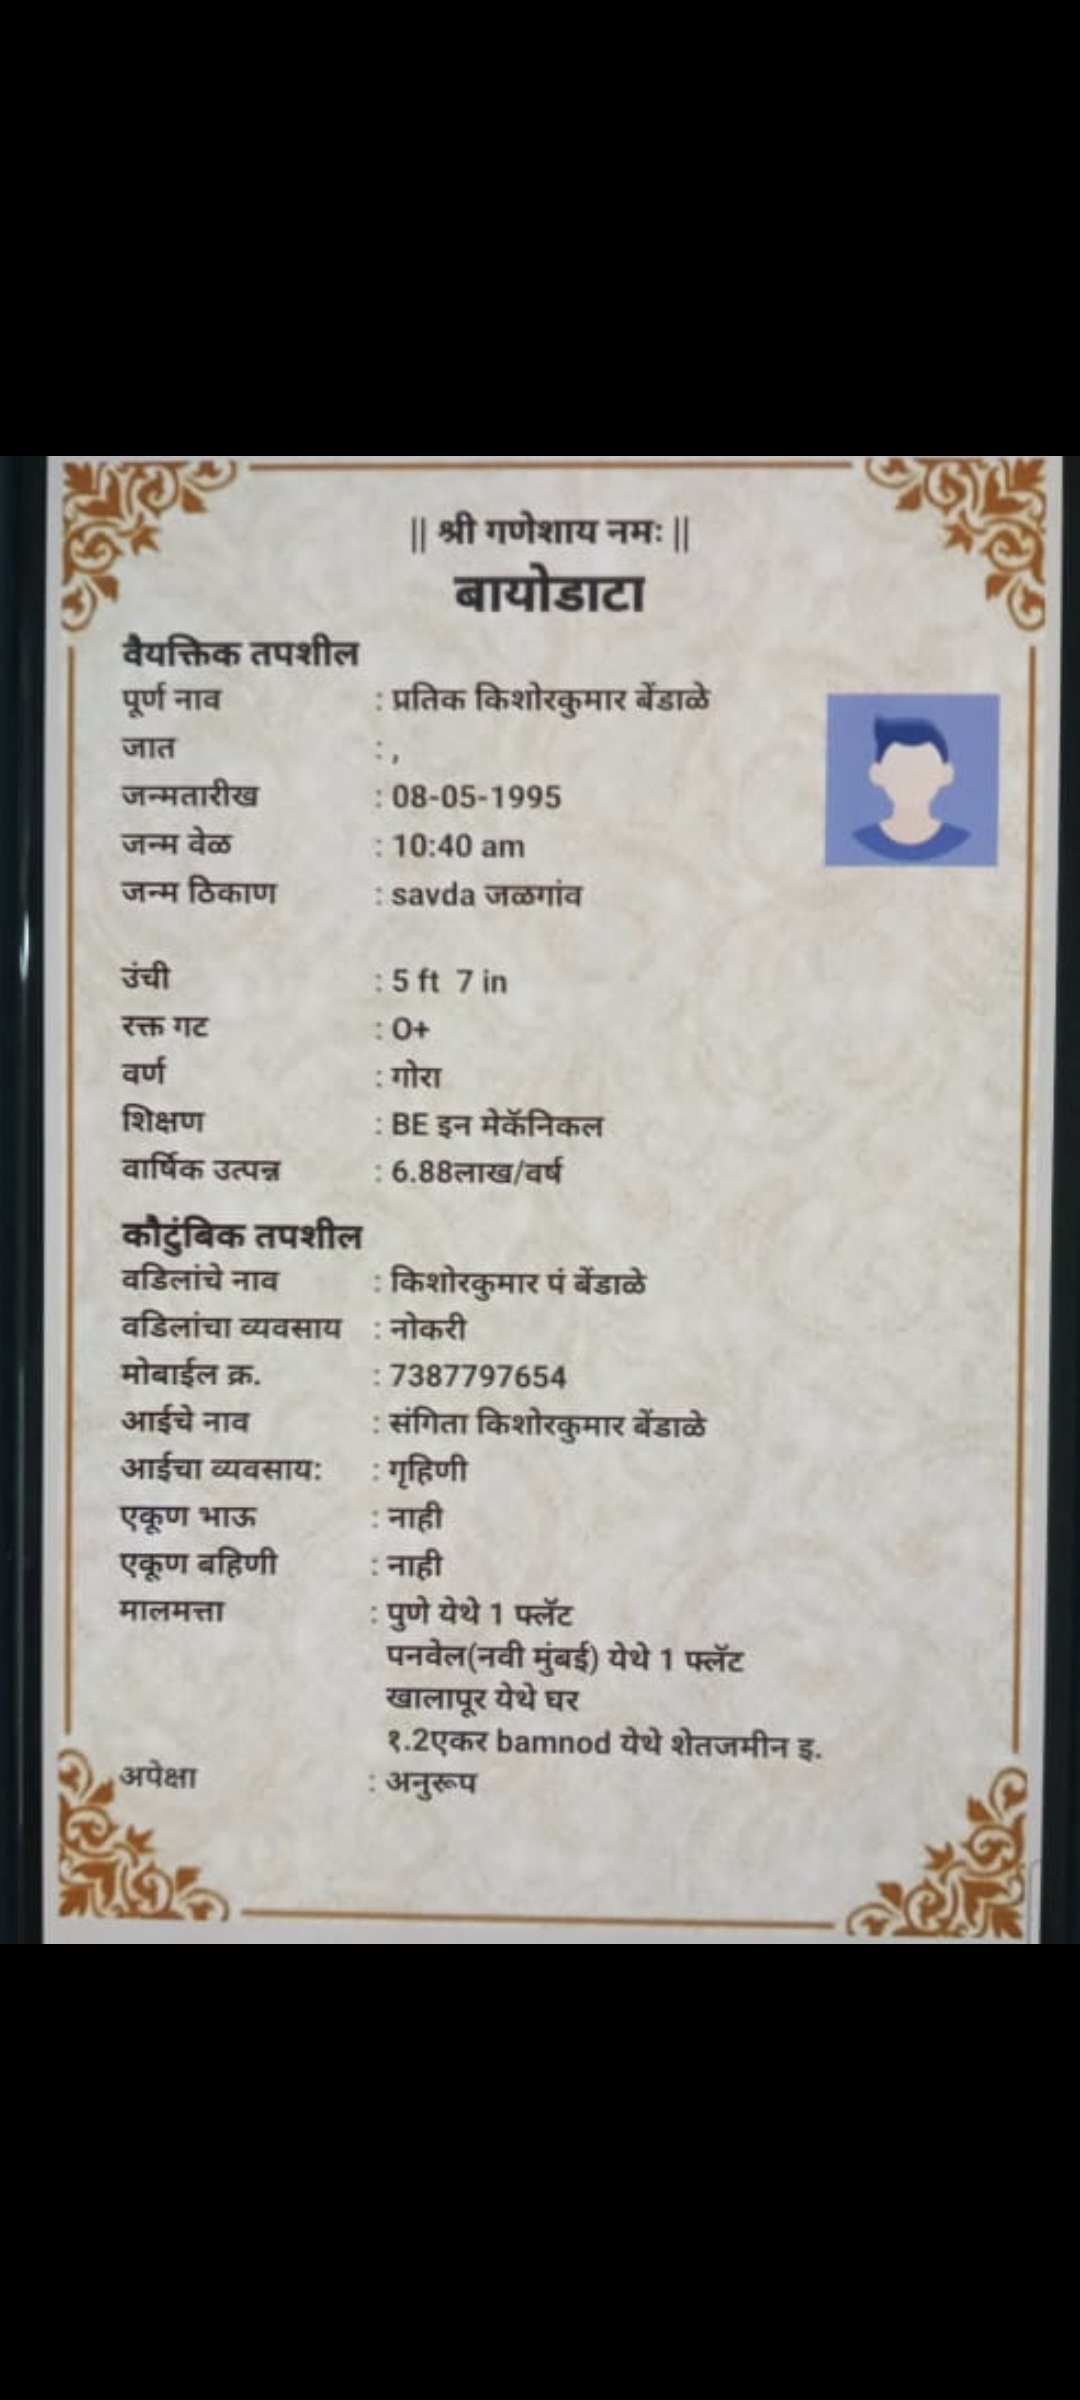 || श्री गणेशाय नमः ||
बायोडाटा
वैयक्तिक तपशील
पूर्ण नाव : प्रतिक किशोरकुमार बेंडाळे
जात : ,
जन्मतारीख : 08-05-1995
जन्म वेळ : 10:40 am
जन्म ठिकाण : savda जळगांव
उंची : 5 ft 7 in
रक्त गट : O+
वर्ण : गोरा
शिक्षण : BE इन मेकॅनिकल
वार्षिक उत्पन्न : 6.88लाख/वर्ष
कौटुंबिक तपशील
वडिलांचे नाव : किशोरकुमार पं बेंडाळे
वडिलांचा व्यवसाय : नोकरी
मोबाईल क्र. : 7387797654
आईचे नाव : संगिता किशोरकुमार बेंडाळे
आईचा व्यवसाय: : गृहिणी
एकूण भाऊ : नाही
एकूण बहिणी : नाही
मालमत्ता : पुणे येथे 1 फ्लॅट
पनवेल(नवी मुंबई) येथे 1 फ्लॅट
खालापूर येथे घर
१.2एकर bamnod येथे शेतजमीन इ.
अपेक्षा : अनुरूप